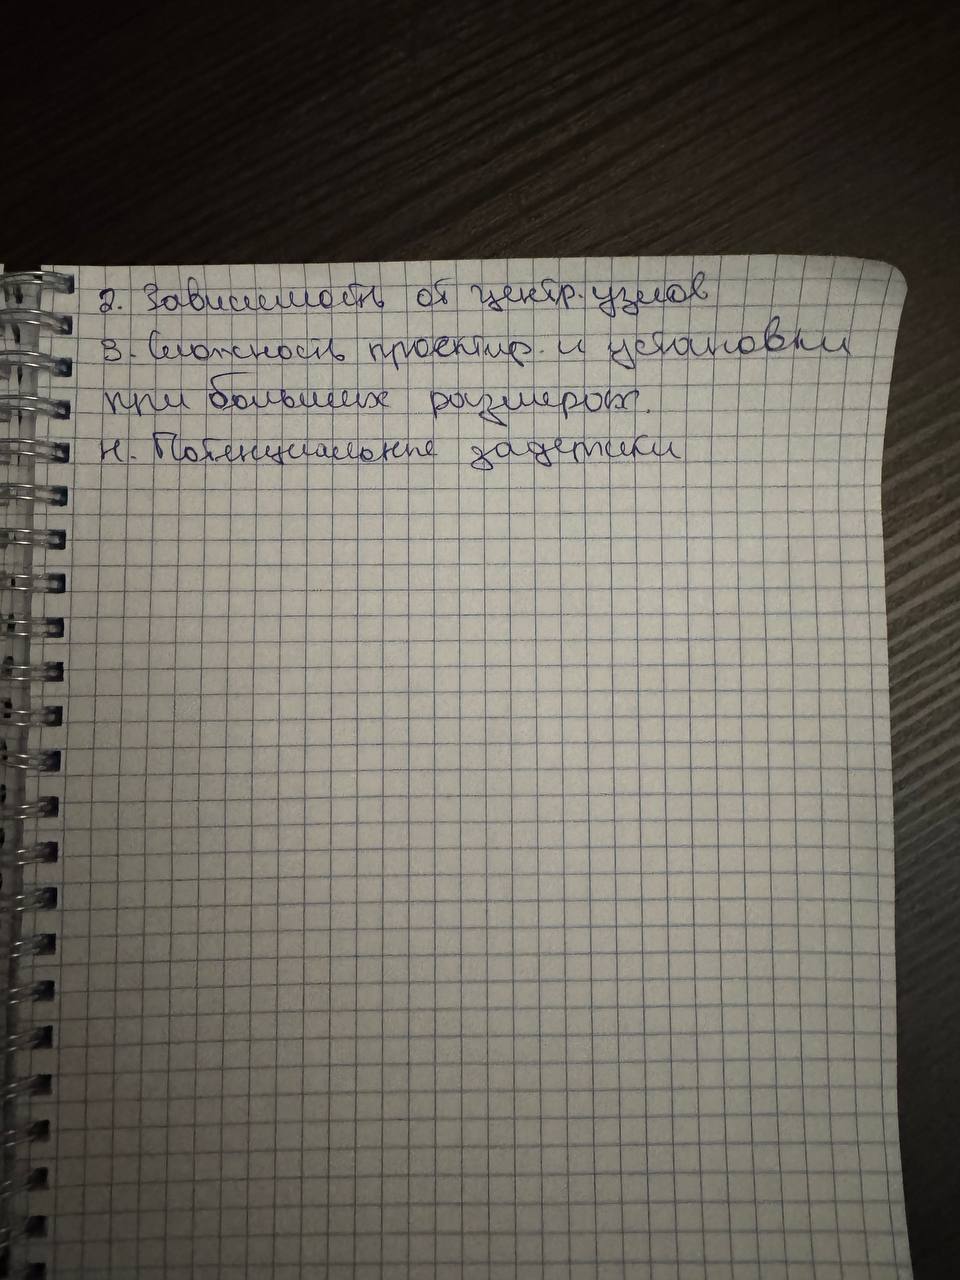 2. Зависимость от центр. узлов
3. Сложность проектир. и установки
при больших размерах.
4. Потенциальные задержки